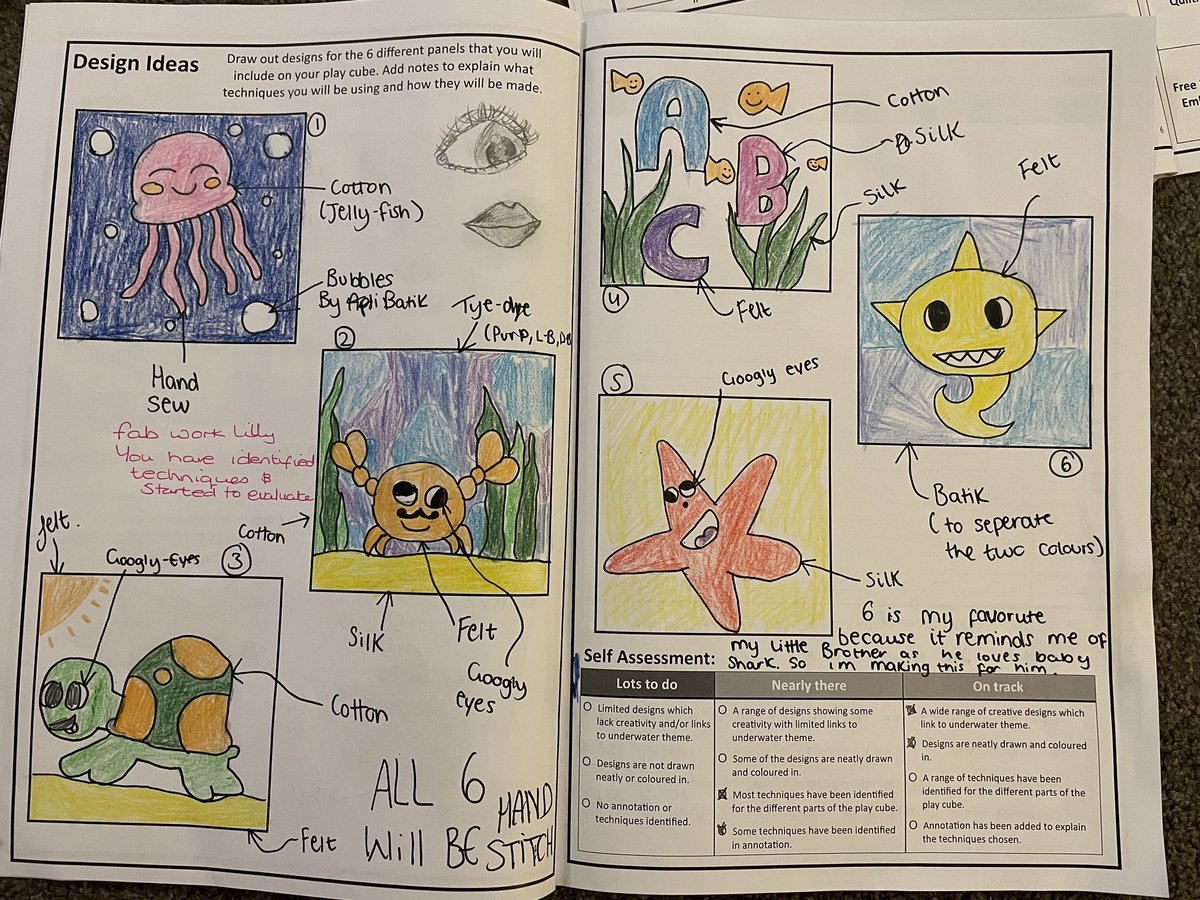 Design Ideas
Draw out designs for the 6 different panels that you will
include on your play cube. Add notes to explain what
techniques you will be using and how they will be made.
1
Cotton
(Jelly-fish)
Bubbles
By Batik
Hand
Sew
fab work Lilly
You have identified
techniques &
Started to evaluate
2
Tye-dye
(Purp, L-B, D-B
Cotton
Silk
Felt
Googly
eyes
felt.
Googly-Eyes
3
Cotton
Felt
ALL 6
Will BE
HAND
STITCH
A
B
C
Cotton
Silk
Silk
Felt
4
Felt
6
Batik
(to seperate
the two colours)
5
Googly eyes
Silk
6 is my favorute
because it reminds me of
my little Brother as he loves baby
Shark. So im making this for him.
Self Assessment:
Lots to do
Limited designs which
lack creativity and/or links
to underwater theme.
Designs are not drawn
neatly or coloured in.
No annotation or
techniques identified.
Nearly there
A range of designs showing some
creativity with limited links to
underwater theme.
Some of the designs are neatly drawn
and coloured in.
Most techniques have been identified
for the different parts of the play cube.
Some techniques have been identified
in annotation.
On track
A wide range of creative designs which
link to underwater theme.
Designs are neatly drawn and coloured
in.
A range of techniques have been
identified for the different parts of the
play cube.
Annotation has been added to explain
the techniques chosen.
Free
6